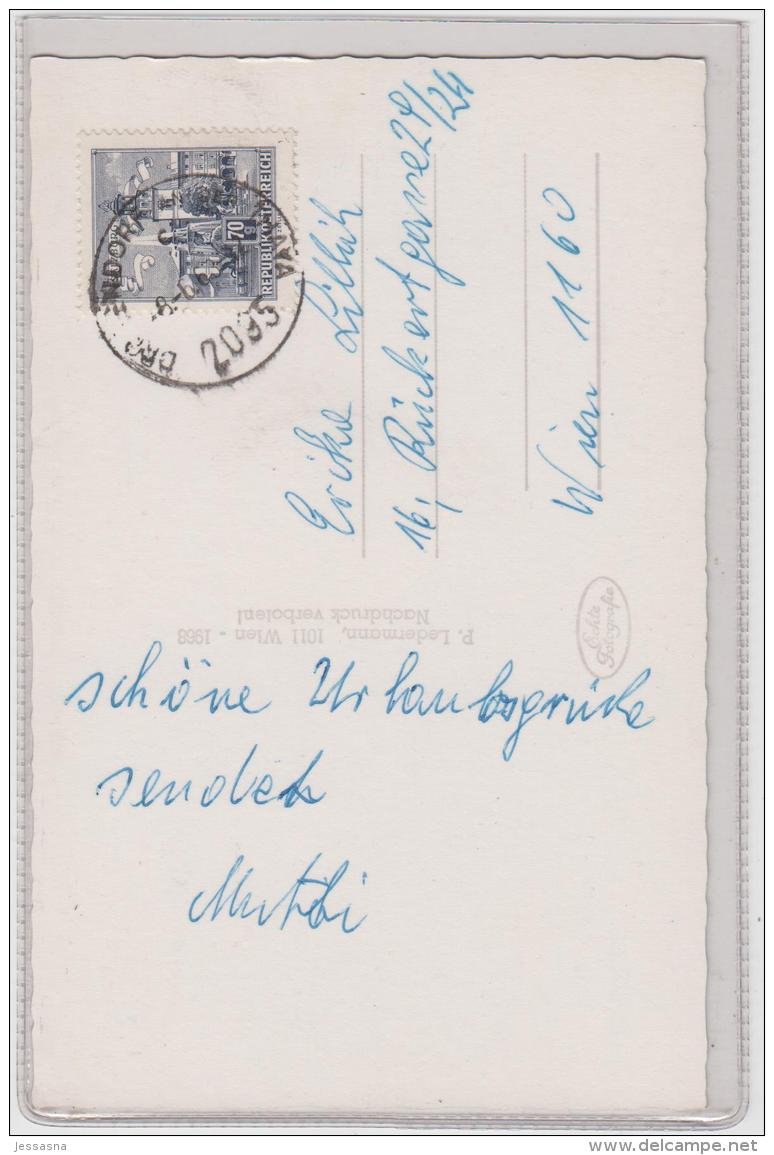 70
g
REPUBLIK ÖSTERREICH
2095
Erika
16, Rückertgasse 29/24
Wien 1160
P. Ledermann, 1011 Wien - 1968
Nachdruck verboten!
Echte
Fotografie
schöne Urlaubsgrüße
sendet
Mutti
jessasna
www.delcampe.net